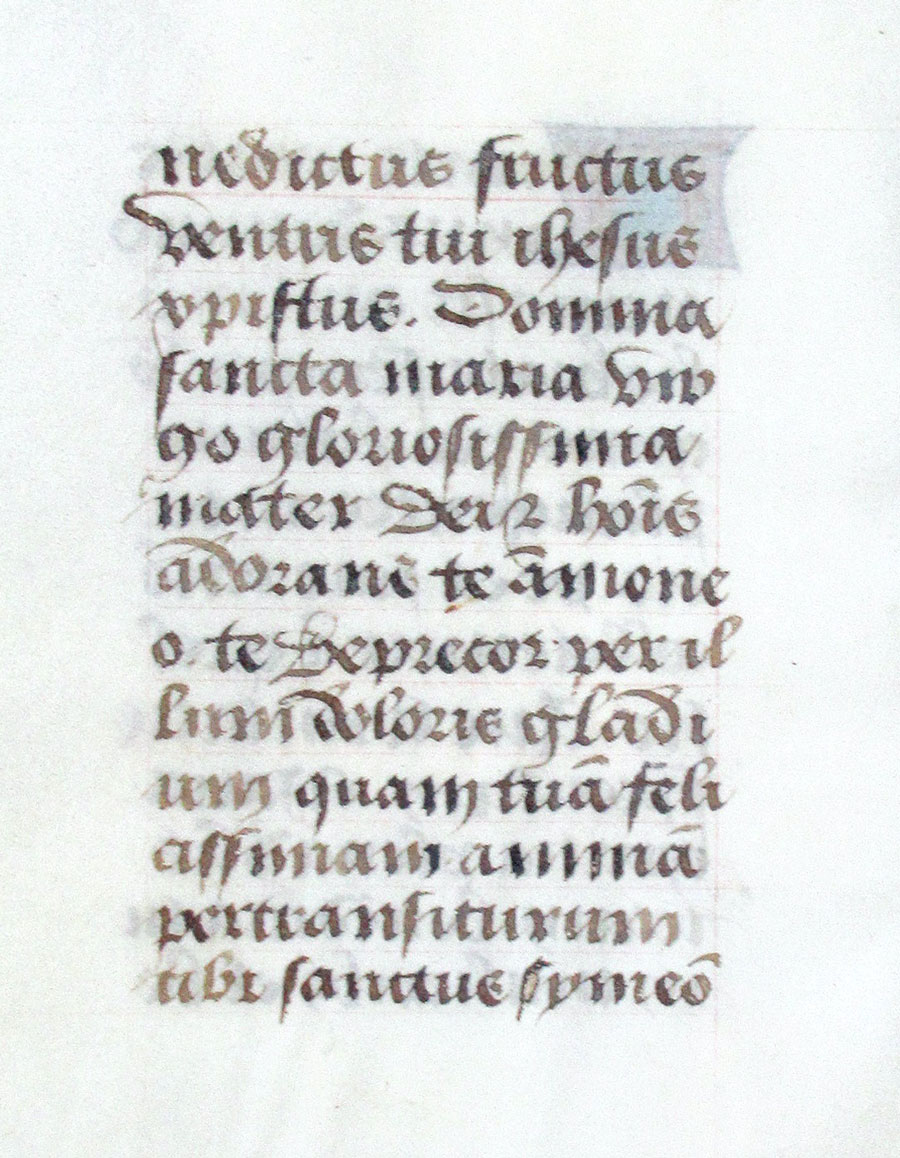 nedictus fructus
ventris tui ihesus
xpistus. Domina
sancta maria vir
go gloriosissima
mater dei ⁊ hoīs
adorans te āmone
o. te deprecor per il
lum doloris gladi
um quam tuā feli
cissimam animā
pertransiturum
tibi sanctus symeō